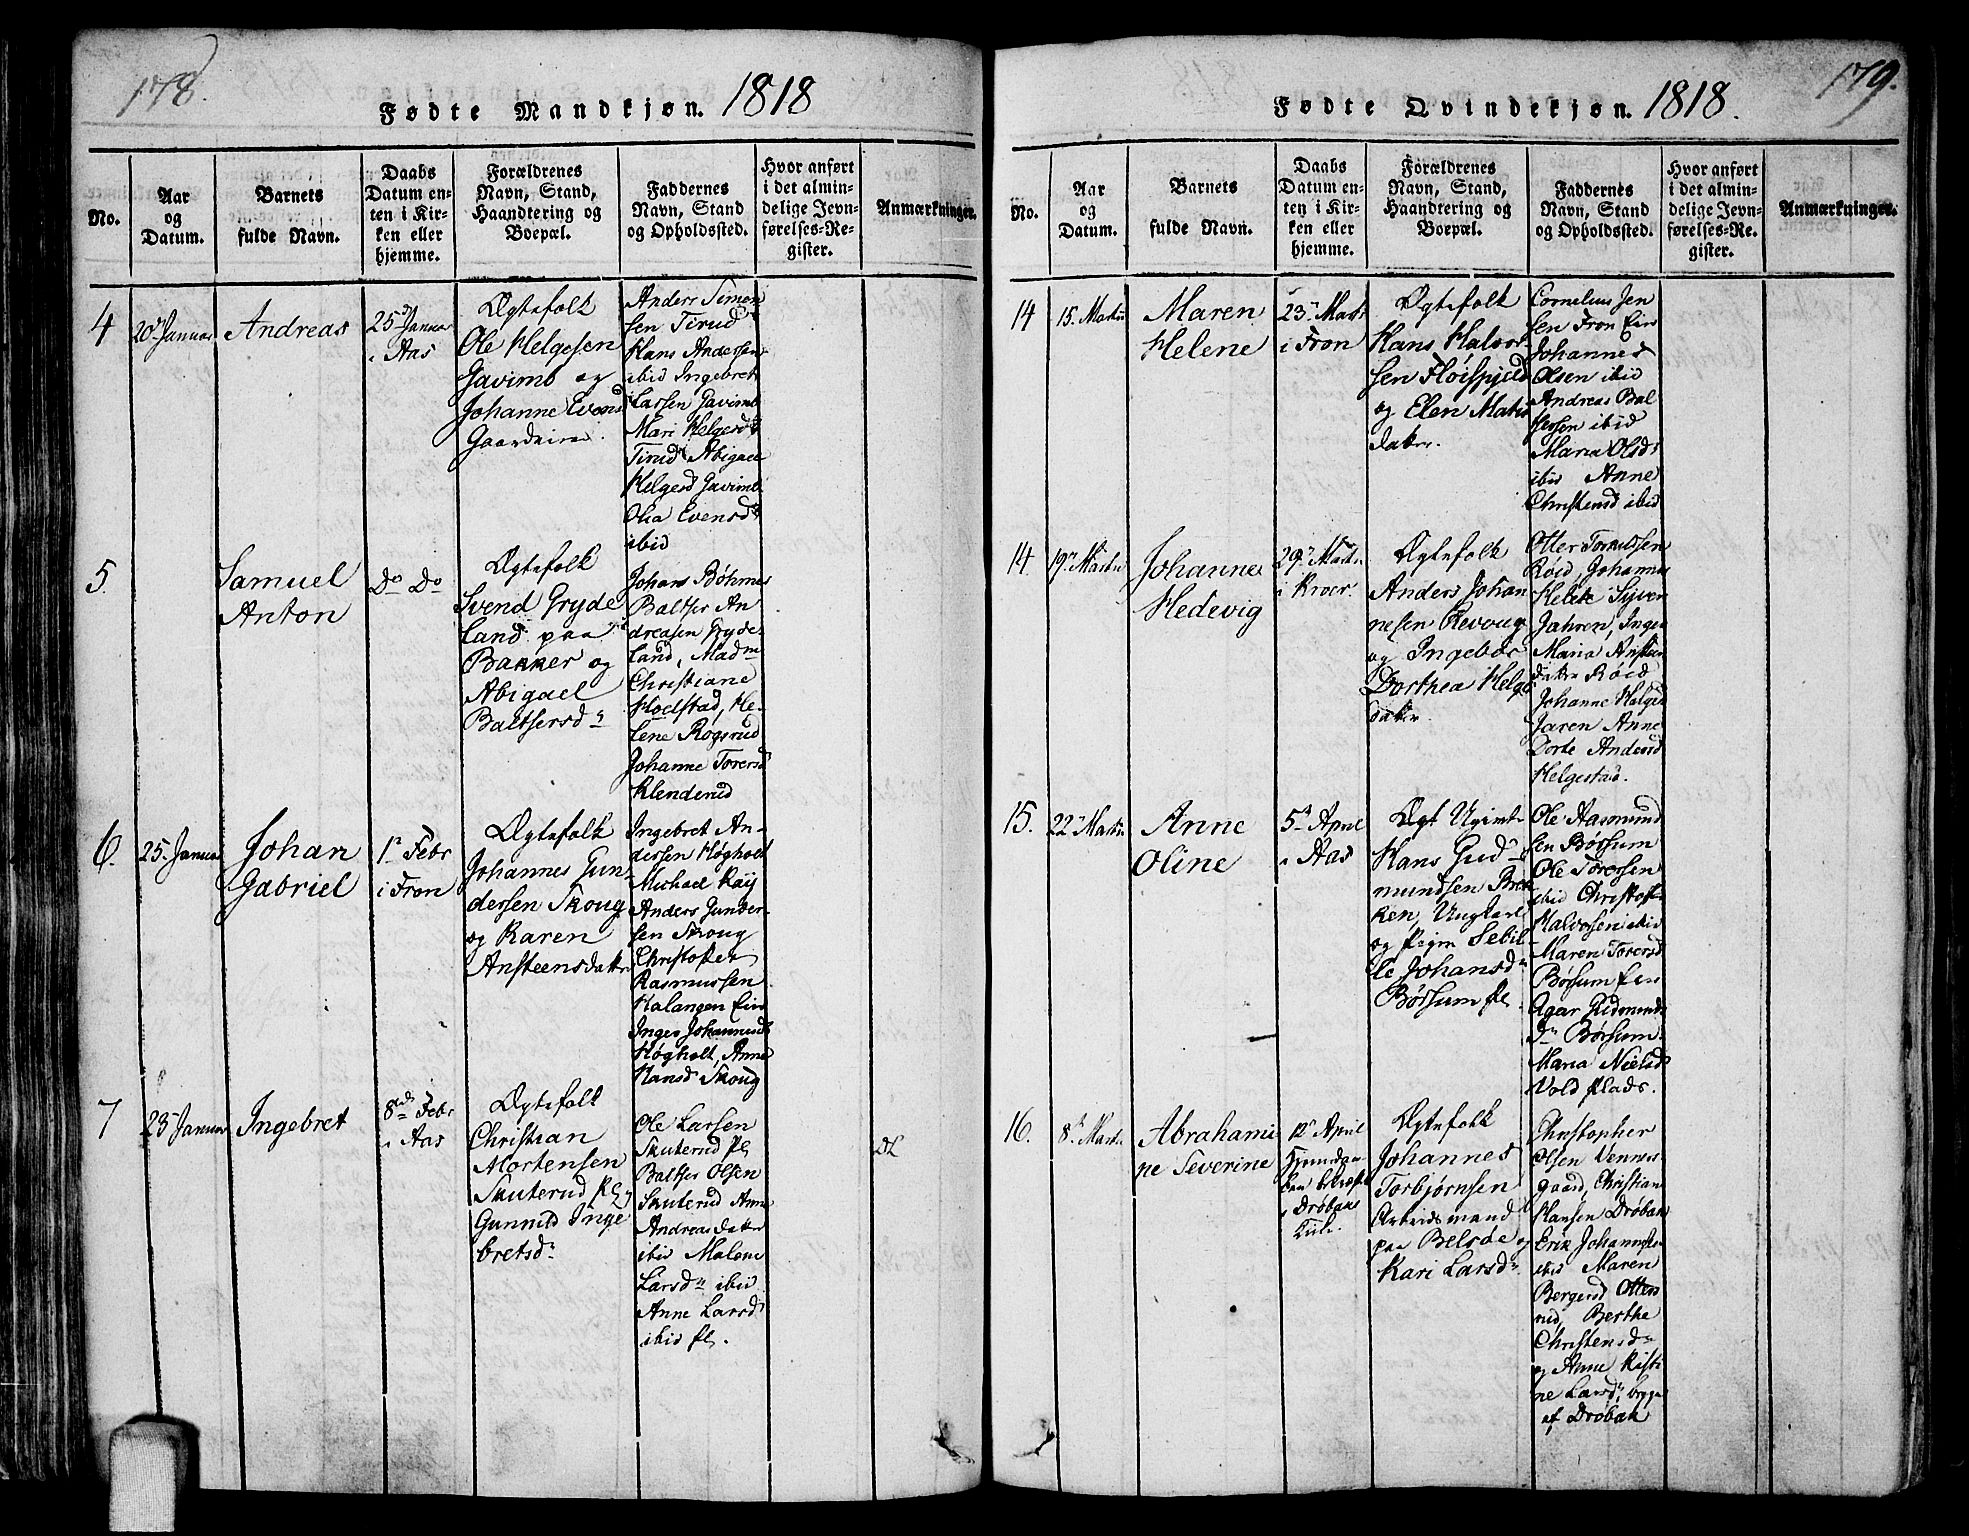 178.
Fødte Mandkjøn. 1818
No.
Aar
og
Datum.
Barnets
fulde Navn.
Daabs
Datum en-
ten i Kir-
ken eller
hjemme.
Forældrenes
Navn, Stand,
Haandtering og
Boepæl.
Faddernes
Navn, Stand
og Opholdssted.
Hvor anført
i det almin-
delige Jevn-
førelses-Re-
gister.
Anmærkninger.
4
20de Januar
Andreas
25d Januar
i Aas
Ægtefolk
Ole Helgesen
Gavimb og
Johanne Evensd
Anders Simen
sen Tirud
Hans Andersen
ibid Ingebret
Larsen Gavimb
Mari Helgesd
Tirud Abigael
Helgesd Gavimb
Olia Evensd
ibid
5.
Samuel
Anton
Do Do
Ægtefolk
Svend Gryde
land paa
Bakker og
Abigael
Baltsersd
Johans Bøhmer
Baltser An
dreasen Gryde-
land, Madm
Christiane
Hodstad, He-
lene Rogsrud
Johanne Torersd
Klenderud
6.
25 Januar
Johan
Gabriel
1 Febr
i Fron
Ægtefolk
Johannes Gun
dersen Skoug
og Karen
Ansteensdatter
Ingebret An-
dersen Høgholt
Michael Kaij
Anders Gunder-
sen Skoug
Christofer
Rasmussen
Kalangen Eier
Inger Johannesd
Høgholt, Anne
Hansd Skoug
7
23 Januar
Ingebret
8de Febr
i Aas
Ægtefolk
Christian
Mortensen
Skuterud Pl og
Gunnild Inge
bretsd
Ole Larsen
Skuterud Pl
Baltser Olsen
Skuterud Anne
Andreasdatter
ibid Malene
Larsd ibid
Anne Larsd
ibid pl.
179.
Fødte Qvindekjøn. 1818.
No.
Aar
og
Datum.
Barnets
fulde Navn.
Daabs
Datum en-
ten i Kir-
ken eller
hjemme.
Forældrenes
Navn, Stand,
Haandtering og
Boepæl.
Faddernes
Navn, Stand
og Opholdssted.
Hvor anført
i det almin-
delige Jevn-
førelses-Re-
gister.
Anmærkninger.
14
15. Martii
Maren
Helene
23 Marts
i Fron
Ægtefolk
Hans Halvor-
sen Fløispjeld
og Elen Mats
datter.
Cornelius Jen
sen Fron Eier
Johannes
Olsen ibid
Andreas Bal
sersen ibid
Maria Olsd
ibid Anne
Christensd ibid
14.
19 Martii
Johanne
Hedevig
29 Marts
i Kroer.
Ægtefolk
Anders Johan
nesen Revoug
og Ingebor
Dorthea Helges
datter.
Otter Torkilssen
Røid, Johannes
Jahren, Inger
Maria Ansteen
datter Røid
Johanne Helgesd
Jaren Anne
Dorte Andersd
Helgestad.
15.
22 Martii
Anne
Oline
5 April
i Aas
Hans Gud-
mundsen Bræk
ken, Ungkarl
og Pigen Sebil-
le Johansd
Børsum pl.
Ole Aasmund
sen Børsum
Ole Torersen
ibid Christofer
Halvorsen ibid
Maren Torersd
Børsum Eier
Agar Gudmunds
Dr Børsum
Maria Nielsd
Vold plads.
16.
8 Marts
Abrahami
ne Severine
12 April
i Drøbaks
Ægtefolk
Johannes
Torbjørnsen
Arbeidsmand
paa Belsøe og
Kari Larsd
Christopher
Olsen Venners
gaard, Christian
Hansen Drøbak
Erik Johannesen
ibid Maren
Bergersd Otters
rud, Berthe
Christensd
og Anne Kisti
ne Larsd, begge
af Drøbak